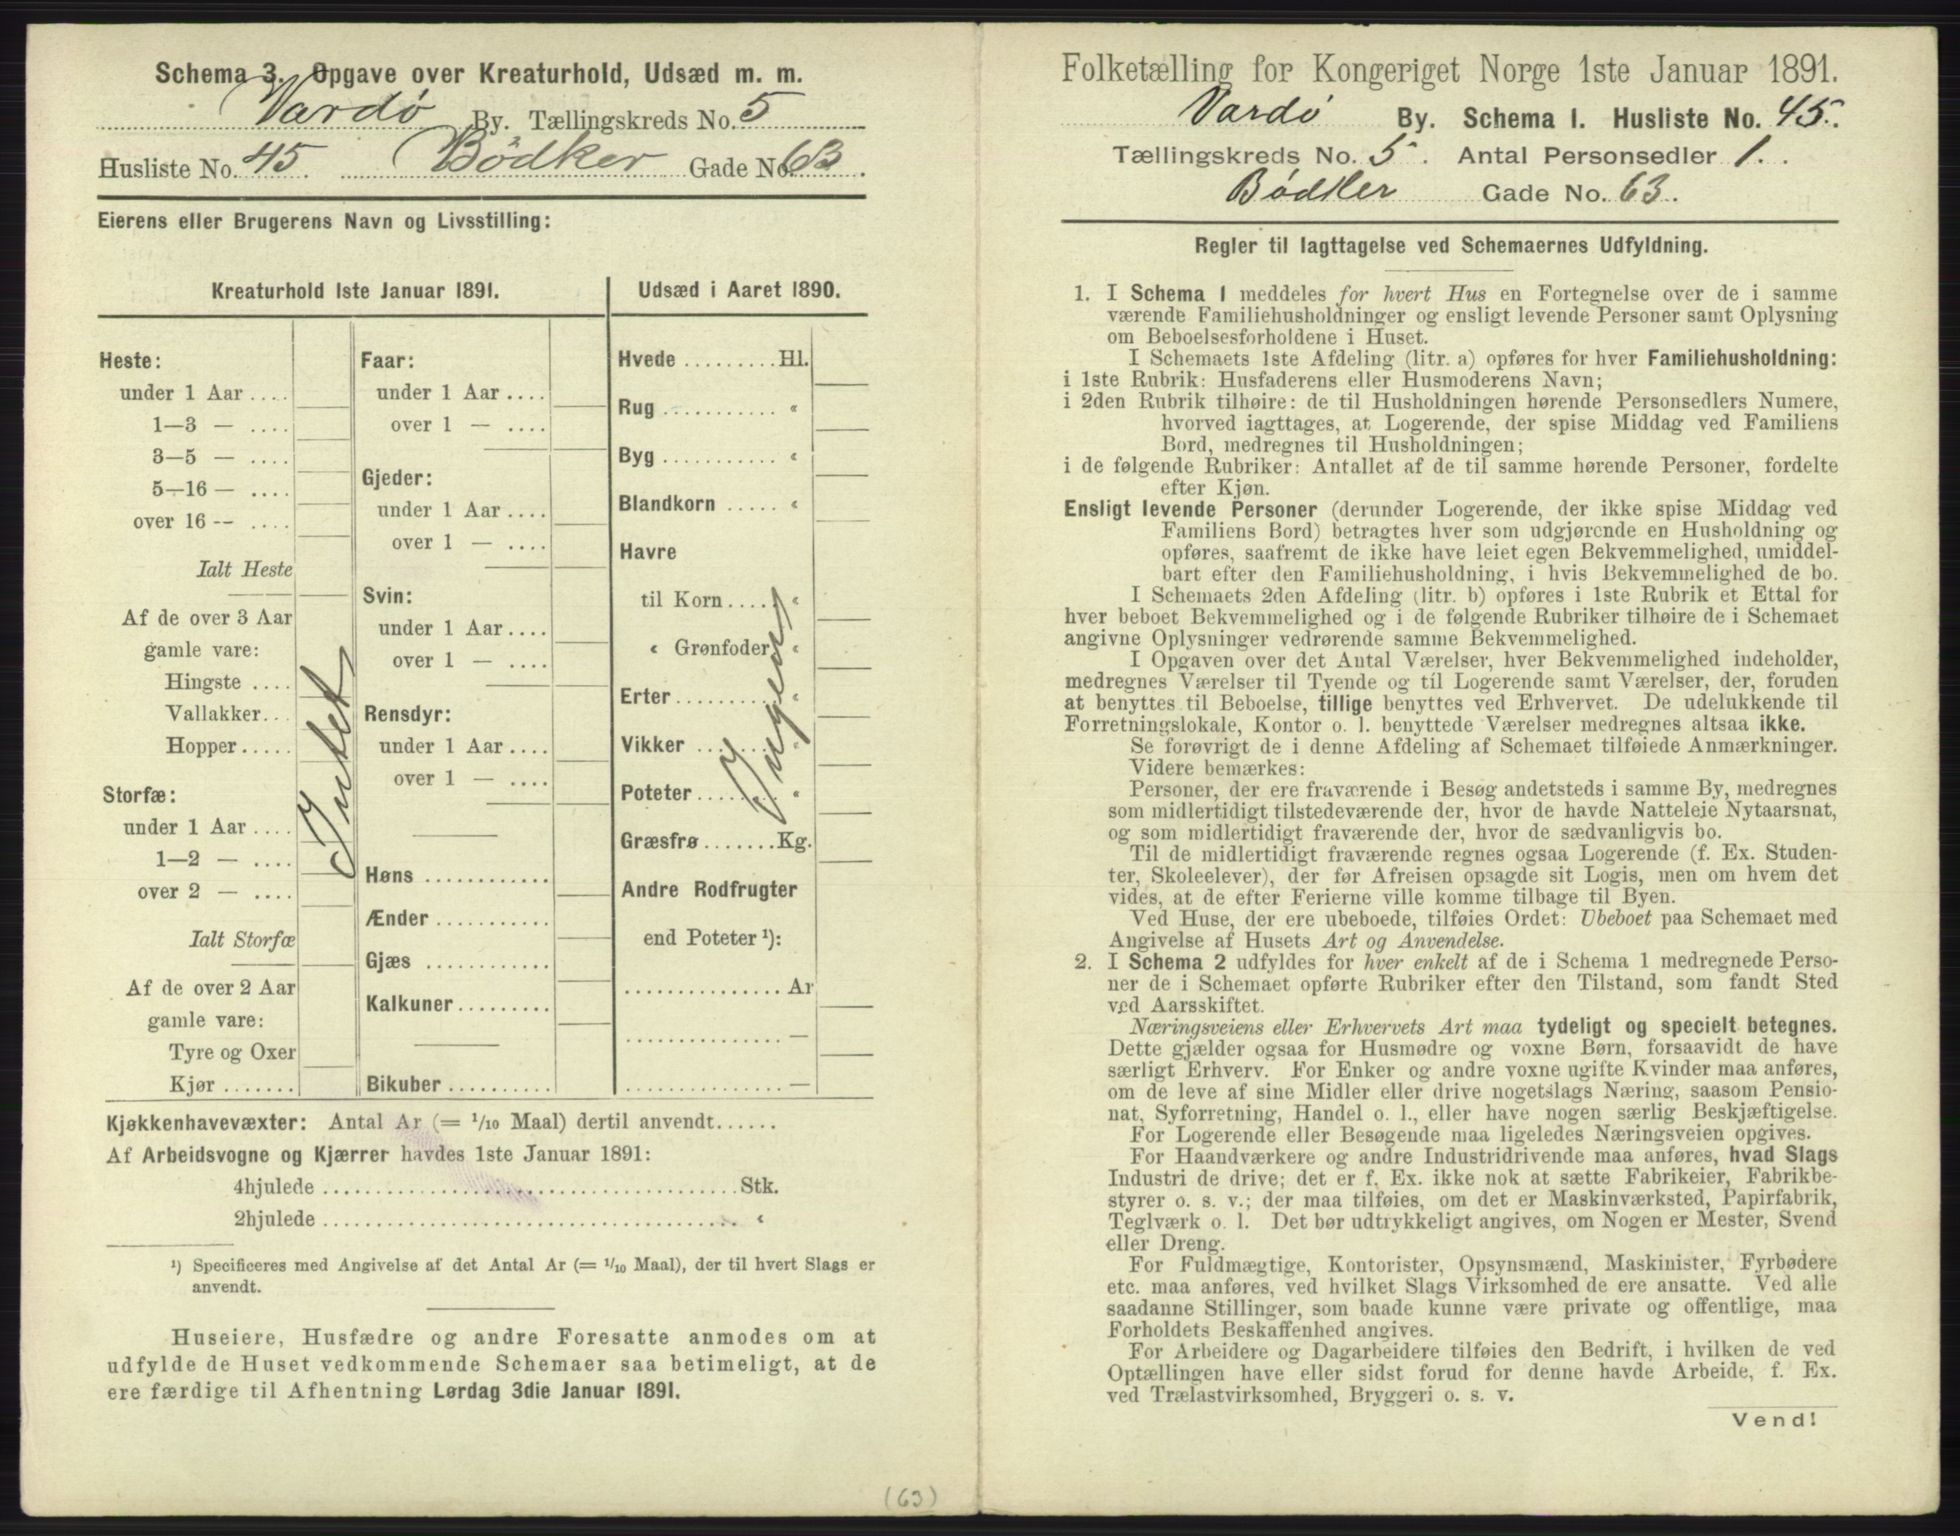 Schema 3. Opgave over Kreaturhold, Udsæd m. m.
Vardø By. Tællingskreds No. 5
Husliste No. 45. Bødker Gade No. 63.
Eierens eller Brugerens Navn og Livsstilling:
Kreaturhold 1ste Januar 1891.
Heste:
under 1 Aar ....
1—3 — ....
3—5 — ....
5—16 — ....
over 16 -- ....
Ialt Heste
Af de over 3 Aar
gamle vare:
Hingste ....
Vallakker...
Hopper.....
Storfæ:
under 1 Aar ....
1—2 — ....
over 2 — ....
Ialt Storfæ
Af de over 2 Aar
gamle vare:
Tyre og Oxer
Kjør .......
Intet
Faar:
under 1 Aar ....
over 1 — ....
Gjeder:
under 1 Aar ....
over 1 — ....
Svin:
under 1 Aar ....
over 1 — ....
Rensdyr:
under 1 Aar ....
over 1 — ....
Høns ............
Ænder ...........
Gjæs ............
Kalkuner.........
Bikuber ..........
Udsæd i Aaret 1890.
Hvede .........Hl.
Rug ........... «
Byg ........... «
Blandkorn ..... «
Havre
til Korn..... «
« Grønfoder «
Erter.......... «
Vikker ........ «
Poteter........ «
Græsfrø.......Kg.
Andre Rodfrugter
end Poteter ¹):
...............Ar
............... —
............... —
Ingen
Kjøkkenhavevæxter: Antal Ar (= 1/10 Maal) dertil anvendt......
Af Arbeidsvogne og Kjærrer havdes 1ste Januar 1891:
4hjulede ........................................Stk.
2hjulede ........................................ «
¹) Specificeres med Angivelse af det Antal Ar (= 1/10 Maal), der til hvert Slags er
anvendt.
Huseiere, Husfædre og andre Foresatte anmodes om at
udfylde de Huset vedkommende Schemaer saa betimeligt, at de
ere færdige til Afhentning Lørdag 3die Januar 1891.
(63)
Folketælling for Kongeriget Norge 1ste Januar 1891.
Vardø By. Schema 1. Husliste No. 45.
Tællingskreds No. 5. Antal Personsedler 1.
Bødker Gade No. 63.
Regler til Iagttagelse ved Schemaernes Udfyldning.
1. I Schema 1 meddeles for hvert Hus en Fortegnelse over de i samme
værende Familiehusholdninger og ensligt levende Personer samt Oplysning
om Beboelsesforholdene i Huset.
I Schemaets 1ste Afdeling (litr. a) opføres for hver Familiehusholdning:
i 1ste Rubrik: Husfaderens eller Husmoderens Navn;
i 2den Rubrik tilhøire: de til Husholdningen hørende Personsedlers Numere,
hvorved iagttages, at Logerende, der spise Middag ved Familiens
Bord, medregnes til Husholdningen;
i de følgende Rubriker: Antallet af de til samme hørende Personer, fordelte
efter Kjøn.
Ensligt levende Personer (derunder Logerende, der ikke spise Middag ved
Familiens Bord) betragtes hver som udgjørende en Husholdning og
opføres, saafremt de ikke have leiet egen Bekvemmelighed, umiddel-
bart efter den Familiehusholdning, i hvis Bekvemmelighed de bo.
I Schemaets 2den Afdeling (litr. b) opføres i 1ste Rubrik et Ettal for
hver beboet Bekvemmelighed og i de følgende Rubriker tilhøire de i Schemaet
angivne Oplysninger vedrørende samme Bekvemmelighed.
I Opgaven over det Antal Værelser, hver Bekvemmelighed indeholder,
medregnes Værelser til Tyende og til Logerende samt Værelser, der, foruden
at benyttes til Beboelse, tillige benyttes ved Erhvervet. De udelukkende til
Forretningslokale, Kontor o. l. benyttede Værelser medregnes altsaa ikke.
Se forøvrigt de i denne Afdeling af Schemaet tilføiede Anmærkninger.
Videre bemærkes:
Personer, der ere fraværende i Besøg andetsteds i samme By, medregnes
som midlertidigt tilstedeværende der, hvor de havde Natteleie Nytaarsnat,
og som midlertidigt fraværende der, hvor de sædvanligvis bo.
Til de midlertidigt fraværende regnes ogsaa Logerende (f. Ex. Studen-
ter, Skoleelever), der før Afreisen opsagde sit Logis, men om hvem det
vides, at de efter Ferierne ville komme tilbage til Byen.
Ved Huse, der ere ubeboede, tilføies Ordet: Ubeboet paa Schemaet med
Angivelse af Husets Art og Anvendelse.
2. I Schema 2 udfyldes for hver enkelt af de i Schema 1 medregnede Perso-
ner de i Schemaet opførte Rubriker efter den Tilstand, som fandt Sted
ved Aarsskiftet.
Næringsveiens eller Erhvervets Art maa tydeligt og specielt betegnes.
Dette gjælder ogsaa for Husmødre og voxne Børn, forsaavidt de have
særligt Erhverv. For Enker og andre voxne ugifte Kvinder maa anføres,
om de leve af sine Midler eller drive nogetslags Næring, saasom Pensio-
nat, Syforretning, Handel o. l., eller have nogen særlig Beskjæftigelse.
For Logerende eller Besøgende maa ligeledes Næringsveien opgives.
For Haandværkere og andre Industridrivende maa anføres, hvad Slags
Industri de drive; det er f. Ex. ikke nok at sætte Fabrikeier, Fabrikbe-
styrer o. s. v.; der maa tilføies, om det er Maskinværksted, Papirfabrik,
Teglværk o. l. Det bør udtrykkeligt angives, om Nogen er Mester, Svend
eller Dreng.
For Fuldmægtige, Kontorister, Opsynsmænd, Maskinister, Fyrbødere
etc. maa anføres, ved hvilket Slags Virksomhed de ere ansatte. Ved alle
saadanne Stillinger, som baade kunne være private og offentlige, maa
Forholdets Beskaffenhed angives.
For Arbeidere og Dagarbeidere tilføies den Bedrift, i hvilken de ved
Optællingen have eller sidst forud for denne havde Arbeide, f. Ex.
ved Trælastvirksomhed, Bryggeri o. s. v.
Vend!